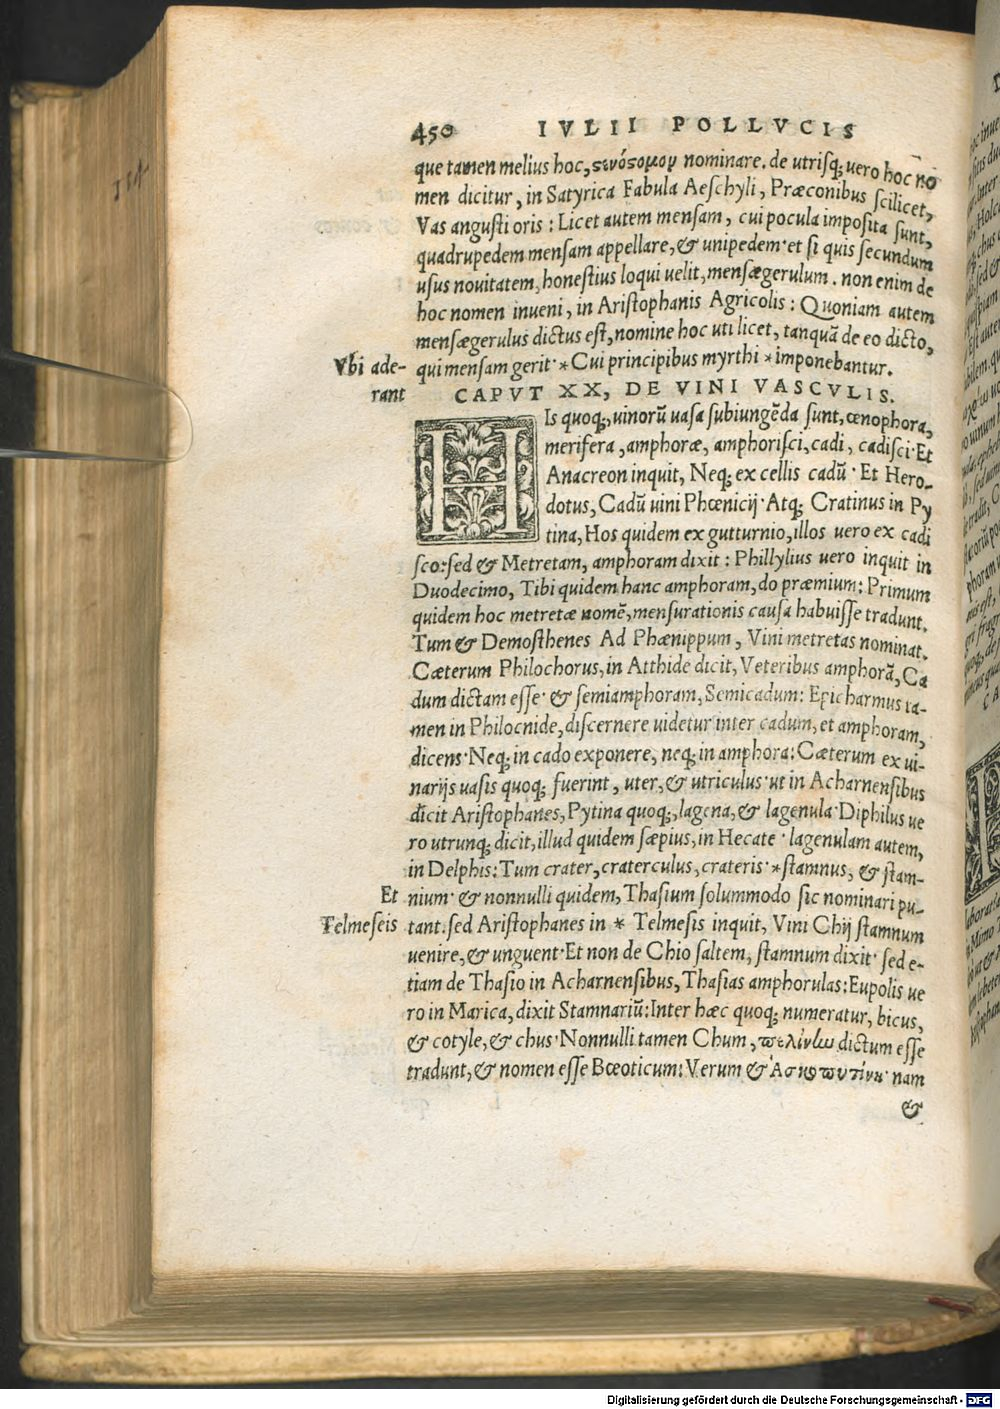 450 IVLII POLLVCIS
que tamen melius hoc, ςενόςομον nominare. de utrisq; uero hoc no
men dicitur, in Satyrica Fabula Aeschyli, Præconibus scilicet,
Vas angusti oris: Licet autem mensam, cui pocula imposita sunt,
quadrupedem mensam appellare, & unipedem· et si quis secundum
usus nouitatem, honestius loqui uelit, mensægerulum. non enim de
hoc nomen inueni, in Aristophanis Agricolis: Quoniam autem
mensægerulus dictus est, nomine hoc uti licet, tanquā de eo dicto,
Vbi ade-
rant
qui mensam gerit· * Cui principibus myrthi * imponebantur.
CAPVT XX, DE VINI VASCVLIS.
HIs quoq;, uinorū uasa subiungēda sunt, œnophora,
merifera, amphoræ, amphorisci, cadi, cadisci· Et
Anacreon inquit, Neq; ex cellis cadū· Et Hero-
dotus, Cadū uini Phœnicij· Atq; Cratinus in Py
tina, Hos quidem ex gutturnio, illos uero ex cadi
sco: sed & Metretam, amphoram dixit: Phillylius uero inquit in
Duodecimo, Tibi quidem hanc amphoram, do præmium: Primum
quidem hoc metretæ nomē, mensurationis causa habuisse tradunt.
Tum & Demosthenes Ad Phænippum, Vini metretas nominat.
Cæterum Philochorus, in Atthide dicit, Veteribus amphorā, Ca
dum dictam esse· & semiamphoram, Semicadum: Epicharmus ta-
men in Philocnide, discernere uidetur inter cadum, et amphoram,
dicens· Neq; in cado exponere, neq; in amphora: Cæterum ex ui-
narijs uasis quoq; fuerint, uter, & utriculus· ut in Acharnensibus
dicit Aristophanes, Pytina quoq;, lagena, & lagenula· Diphilus ue
ro utrunq; dicit, illud quidem sæpius, in Hecate· lagenulam autem,
in Delphis: Tum crater, craterculus, crateris· * stamnus, & stam-
Et
Telmeseis
nium· & nonnulli quidem, Thasium solummodo sic nominari pu-
tant. sed Aristophanes in * Telmesis inquit, Vini Chij stamnum
uenire, & unguent· Et non de Chio saltem, stamnum dixit· sed e-
tiam de Thasio in Acharnensibus, Thasias amphorulas: Eupolis ue
ro in Marica, dixit Stamnariū: Inter hæc quoq; numeratur, bicus,
& cotyle, & chus· Nonnulli tamen Chum, πελίνω dictum esse
tradunt, & nomen esse Bœoticum: Verum & Ἀσκοπυτίνη· nam
&
Digitalisierung gefördert durch die Deutsche Forschungsgemeinschaft - DFG